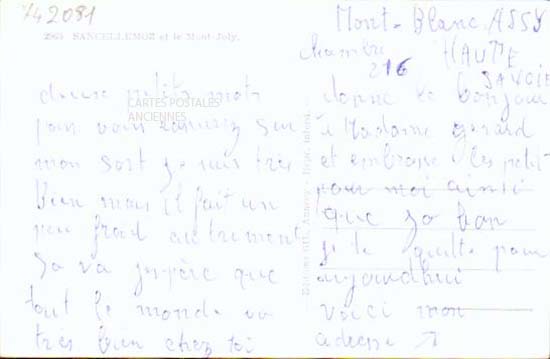 742081
2965 SANCELLEMOZ et le Mont-Joly.
CARTES POSTALES
ANCIENNES
deux petits mots
pour vous rassurez sur
mon sort je suis très
bien mais il fait un
peu froid autrement
sa va jespère que
tout le monde va
très bien chez toi
Mont-Blanc ASSY
chambre HAUTE
216 SAVOIE
donne le bonjour
à Madame gerard
et embrasse les petit
pour moi ainsi
que
je te quitte pour
aujourdhui
voici mon
adresse